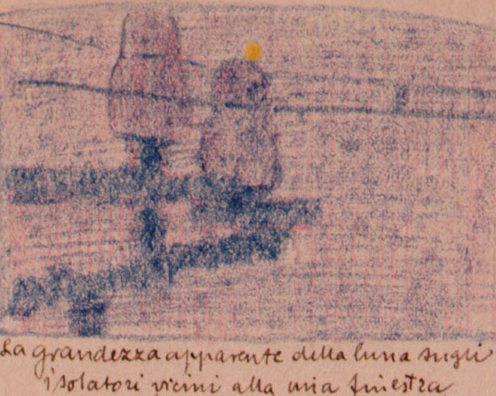 La grandezza apparente della luna sugli
isolatori vicini alla mia finestra